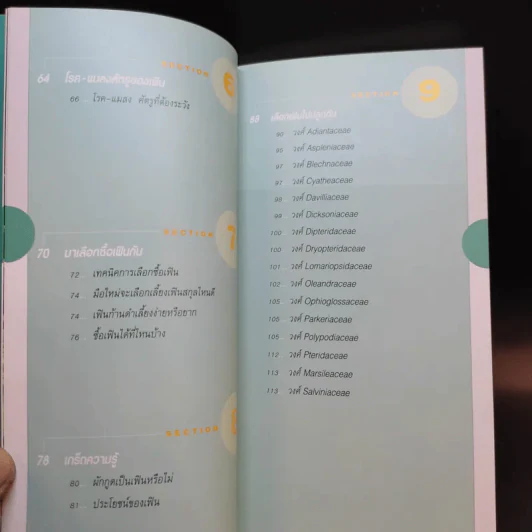 SECTION 6
64 โรค-แมลงศัตรูของเฟิน
66 โรค-แมลง ศัตรูที่ต้องระวัง
SECTION 7
70 มาเลือกซื้อเฟินกัน
72 เทคนิคการเลือกซื้อเฟิน
74 มือใหม่จะเลือกเลี้ยงเฟินสกุลไหนดี
74 เฟินก้านดำเลี้ยงง่ายหรือยาก
76 ซื้อเฟินได้ที่ไหนบ้าง
SECTION
78 เกร็ดความรู้
80 ผักกูดเป็นเฟินหรือไม่
81 ประโยชน์ของเฟิน
SECTION 9
วงศ์ Adiantaceae
95 วงศ์ Aspleniaceae
97 วงศ์ Blechnaceae
97 วงศ์ Cyatheaceae
98 วงศ์ Davilliaceae
99 วงศ์ Dicksoniaceae
100 วงศ์ Dipteridaceae
100 วงศ์ Dryopteridaceae
101 วงศ์ Lomariopsidaceae
102 วงศ์ Oleandraceae
105 วงศ์ Ophioglossaceae
105 วงศ์ Parkeriaceae
105 วงศ์ Polypodiaceae
112 วงศ์ Pteridaceae
113 วงศ์ Marsileaceae
113 วงศ์ Salviniaceae